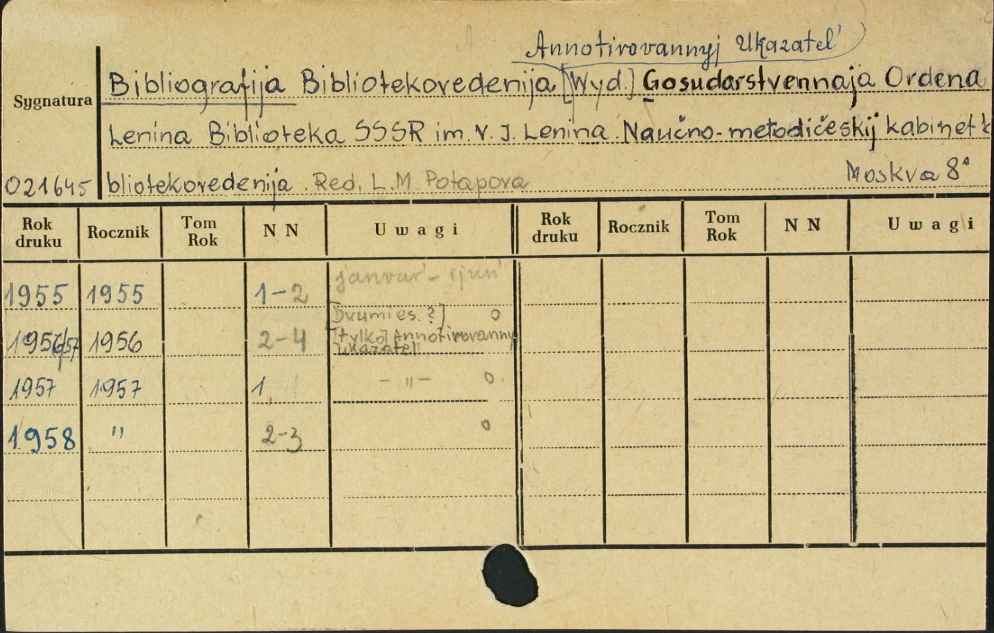 Annotirovannyj Ukazatel'
Bibliografija Bibliotekovedenija [Wyd.] Gosudarstvennaja Ordena
Sygnatura
Lenina Biblioteka SSSR im. V. J. Lenina. Naučno-metodičeskij kabinet
021645 bliotekovedenija. Red. L.M. Potapova Moskva 8°
Rok druku Rocznik Tom Rok NN Uwagi Rok druku Rocznik Tom Rok NN Uwagi
1955 1955 1-2 janvar' - ijun'
[Dvumies.?] o
1956/57 1956 2-4 [tylko] Annotirovanny
ukazatel'
1957 1957 1 - " - o
1958 " 2-3 o